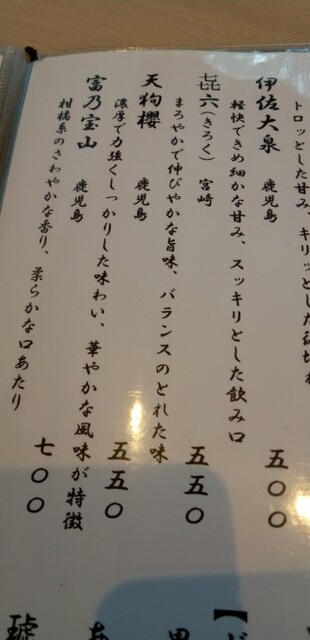 トロッとした甘み、キリッとした
伊佐大泉 鹿児島 五〇〇
軽快できめ細かな甘み、スッキリとした飲み口
㐂六(きろく) 宮崎 五五〇
まろやかで伸びやかな旨味、バランスのとれた味
天狗櫻 鹿児島 五五〇
濃厚で力強くしっかりした味わい、華やかな風味が特徴
富乃宝山 鹿児島 七〇〇
柑橘系のさわやかな香り、柔らかな口あたり